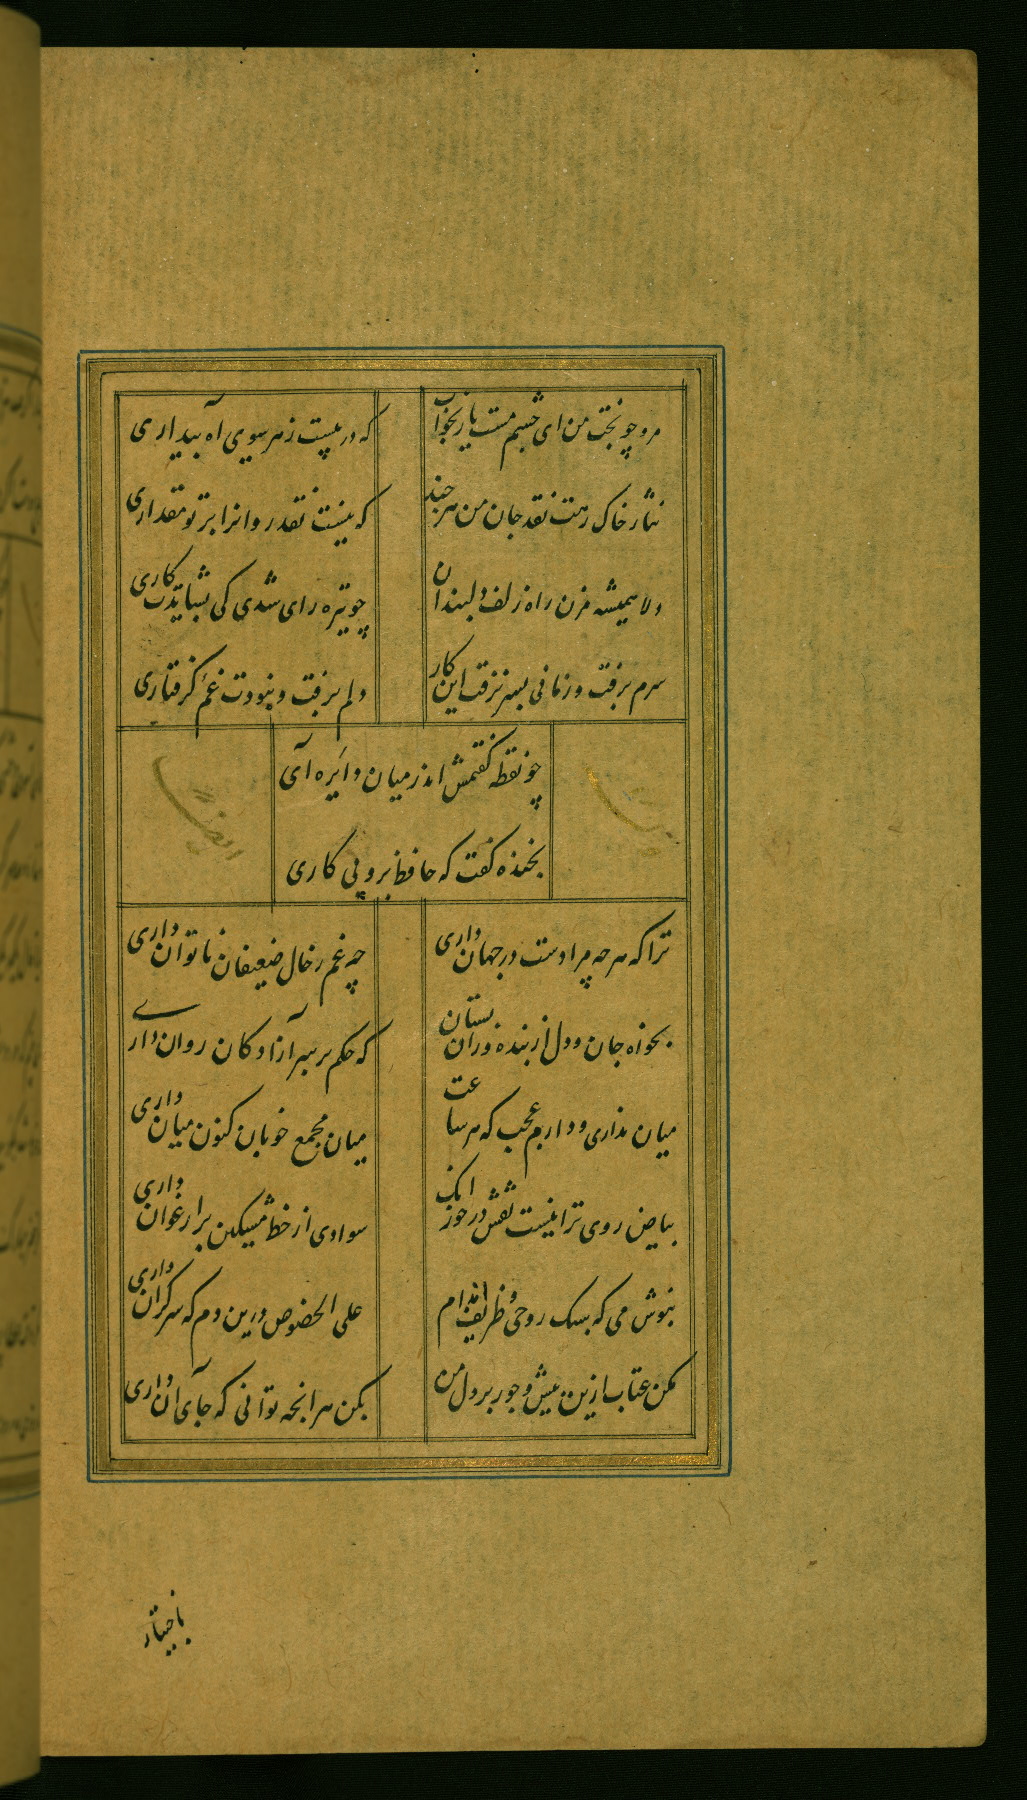 مرو چو بخت من ای چشم مست یار بخواب
که در پیست ز هر سوی آه بیداری
نثار خاک رهت نقد جان من هر چند
که نیست نقد روانرا بر تو مقداری
دلا همیشه مزن راه زلف دلبندان
چو تیره رای شدی کی بشایدت کاری
سرم برفت و زمانی بسر نرفت این کار
دلم برفت و نبودت غم گرفتاری
چو نقطه گفتمش اندر میان دایره آی
بخنده گفت که حافظ برو پی کاری
ترا که هر چه مرادست در جهان داری
چه غم ز حال ضعیفان ناتوان داری
بخواه جان و دل از بنده و روان بستان
که حکم بر سر آزادکان روان داری
میان نداری و دارم عجب که هر ساعت
میان مجمع خوبان کنون میان داری
بیاض روی ترا نیست نقش در خور ازانک
سوادی از خط مشکین بر ارغوان داری
بنوش می که سبک روحی و ظریف اندام
علی الخصوص درین دم که سرگران داری
مکن عتاب ازین بیش و جور بر دل من
بکن هر انچه توانی که جای آن داری
باختیار